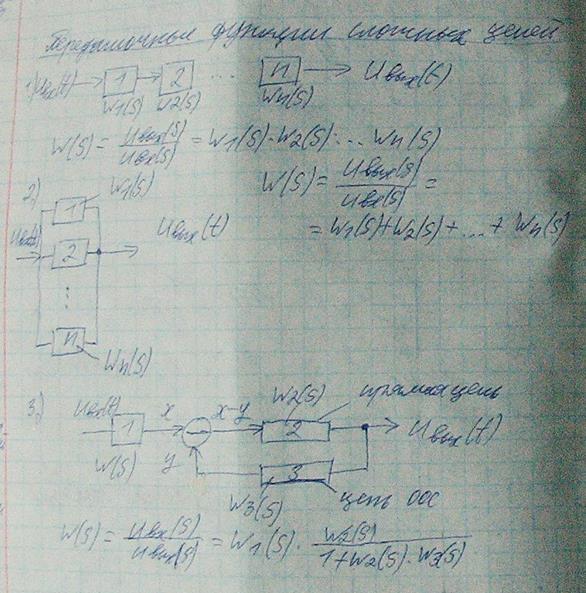 Передаточные функции сложных цепей
1) Uвх(t) 1 2 ... n Uвых(t)
W1(S) W2(S) Wn(S)
W(S) = Uвых(S) / Uвх(S) = W1(S) · W2(S) · ... Wn(S)
2) W1(S)
1
Uвх(t) 2 Uвых(t)
⋮
n
Wn(S)
W(S) = Uвых(S) / Uвх(S) =
= W1(S) + W2(S) + ... + Wn(S)
3) Uвх(t) 1 x x-y W2(S) 2 прямая цепь Uвых(t)
W(S) y 3
W3(S) цепь ООС
W(S) = Uвх(S) / Uвых(S) = W1(S) · W2(S) / 1+W2(S)·W3(S)